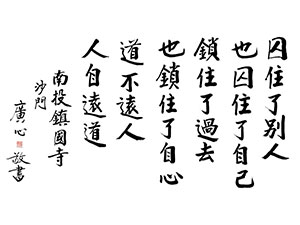 囚住了別人
也囚住了自己
鎖住了過去
也鎖住了自心
道不遠人
人自遠道
南投鎮國寺
沙門
廣心
敬書